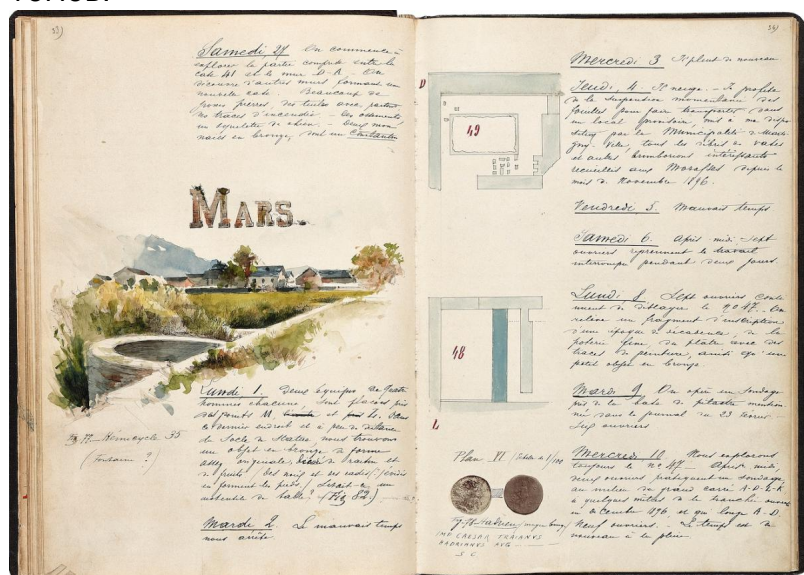 Samedi 27 On commence à
explorer la partie comprise entre la
cave 41 et le mur D-A. On
découvre d'autres murs formant une
nouvelle cave. Beaucoup de
grosses pierres, des tuiles avec, partout
des traces d'incendie. Des ossements
un squelette de chien. Deux mon
naies en bronze, dont un Constantin
MARS.
Lundi 1. Deux équipes de quatre
hommes chacune, sont placées près
des points M. et L. Dans
ce dernier endroit et à peu de distance
du Socle de Statue, nous trouvons
un objet en bronze de forme
assez originale, décoré de feuilles et
de fruits. Des noix et des
en forment les pieds. Serait-ce un
ustensile de table? (Fig 82)
Fig. 77 Hémicycle 35
(Fontaine ?)
Mardi 2. Le mauvais temps
nous arrête.
D
49
48
L
Plan VI Echelle de 1/100
IMP CAESAR TRAIANVS
HADRIANVS AVG
S C
Mercredi 3 Il pleut de nouveau
Jeudi, 4. Il neige. Je profite
de la suspension momentanée des
fouilles pour faire transporter dans
un local provisoire, mis à ma dispo
sition par la Municipalité de Marti
gny-Ville, tous les débris de vases
et autres brimborions intéressants
recueillis aux Morasses depuis le
mois de Novembre 1896.
Vendredi 5. Mauvais temps
Samedi 6. Après-midi Sept
ouvriers reprennent le travail
interrompu pendant deux jours.
Lundi 8 Sept ouvriers conti
nuent de déblayer le nº 47. On
relève un fragment d'inscription
d'une époque de décadence, de la
poterie fine, du plâtre avec des
traces de peinture, ainsi qu'un
petit objet en bronze
Mardi 9 On opère un sondage
près de la base de pilastre mention
née dans le journal du 23 février.
Six ouvriers
Mercredi 10. Nous explorons
toujours le nº 47 Après midi,
deux ouvriers pratiquent un sondage
au milieu du grand carré A-D-L-K
à quelques mètres de la tranchée ouverte
en décembre 1896 et qui longe A-D.
Neuf ouvriers. Le temps est de
nouveau à la pluie.